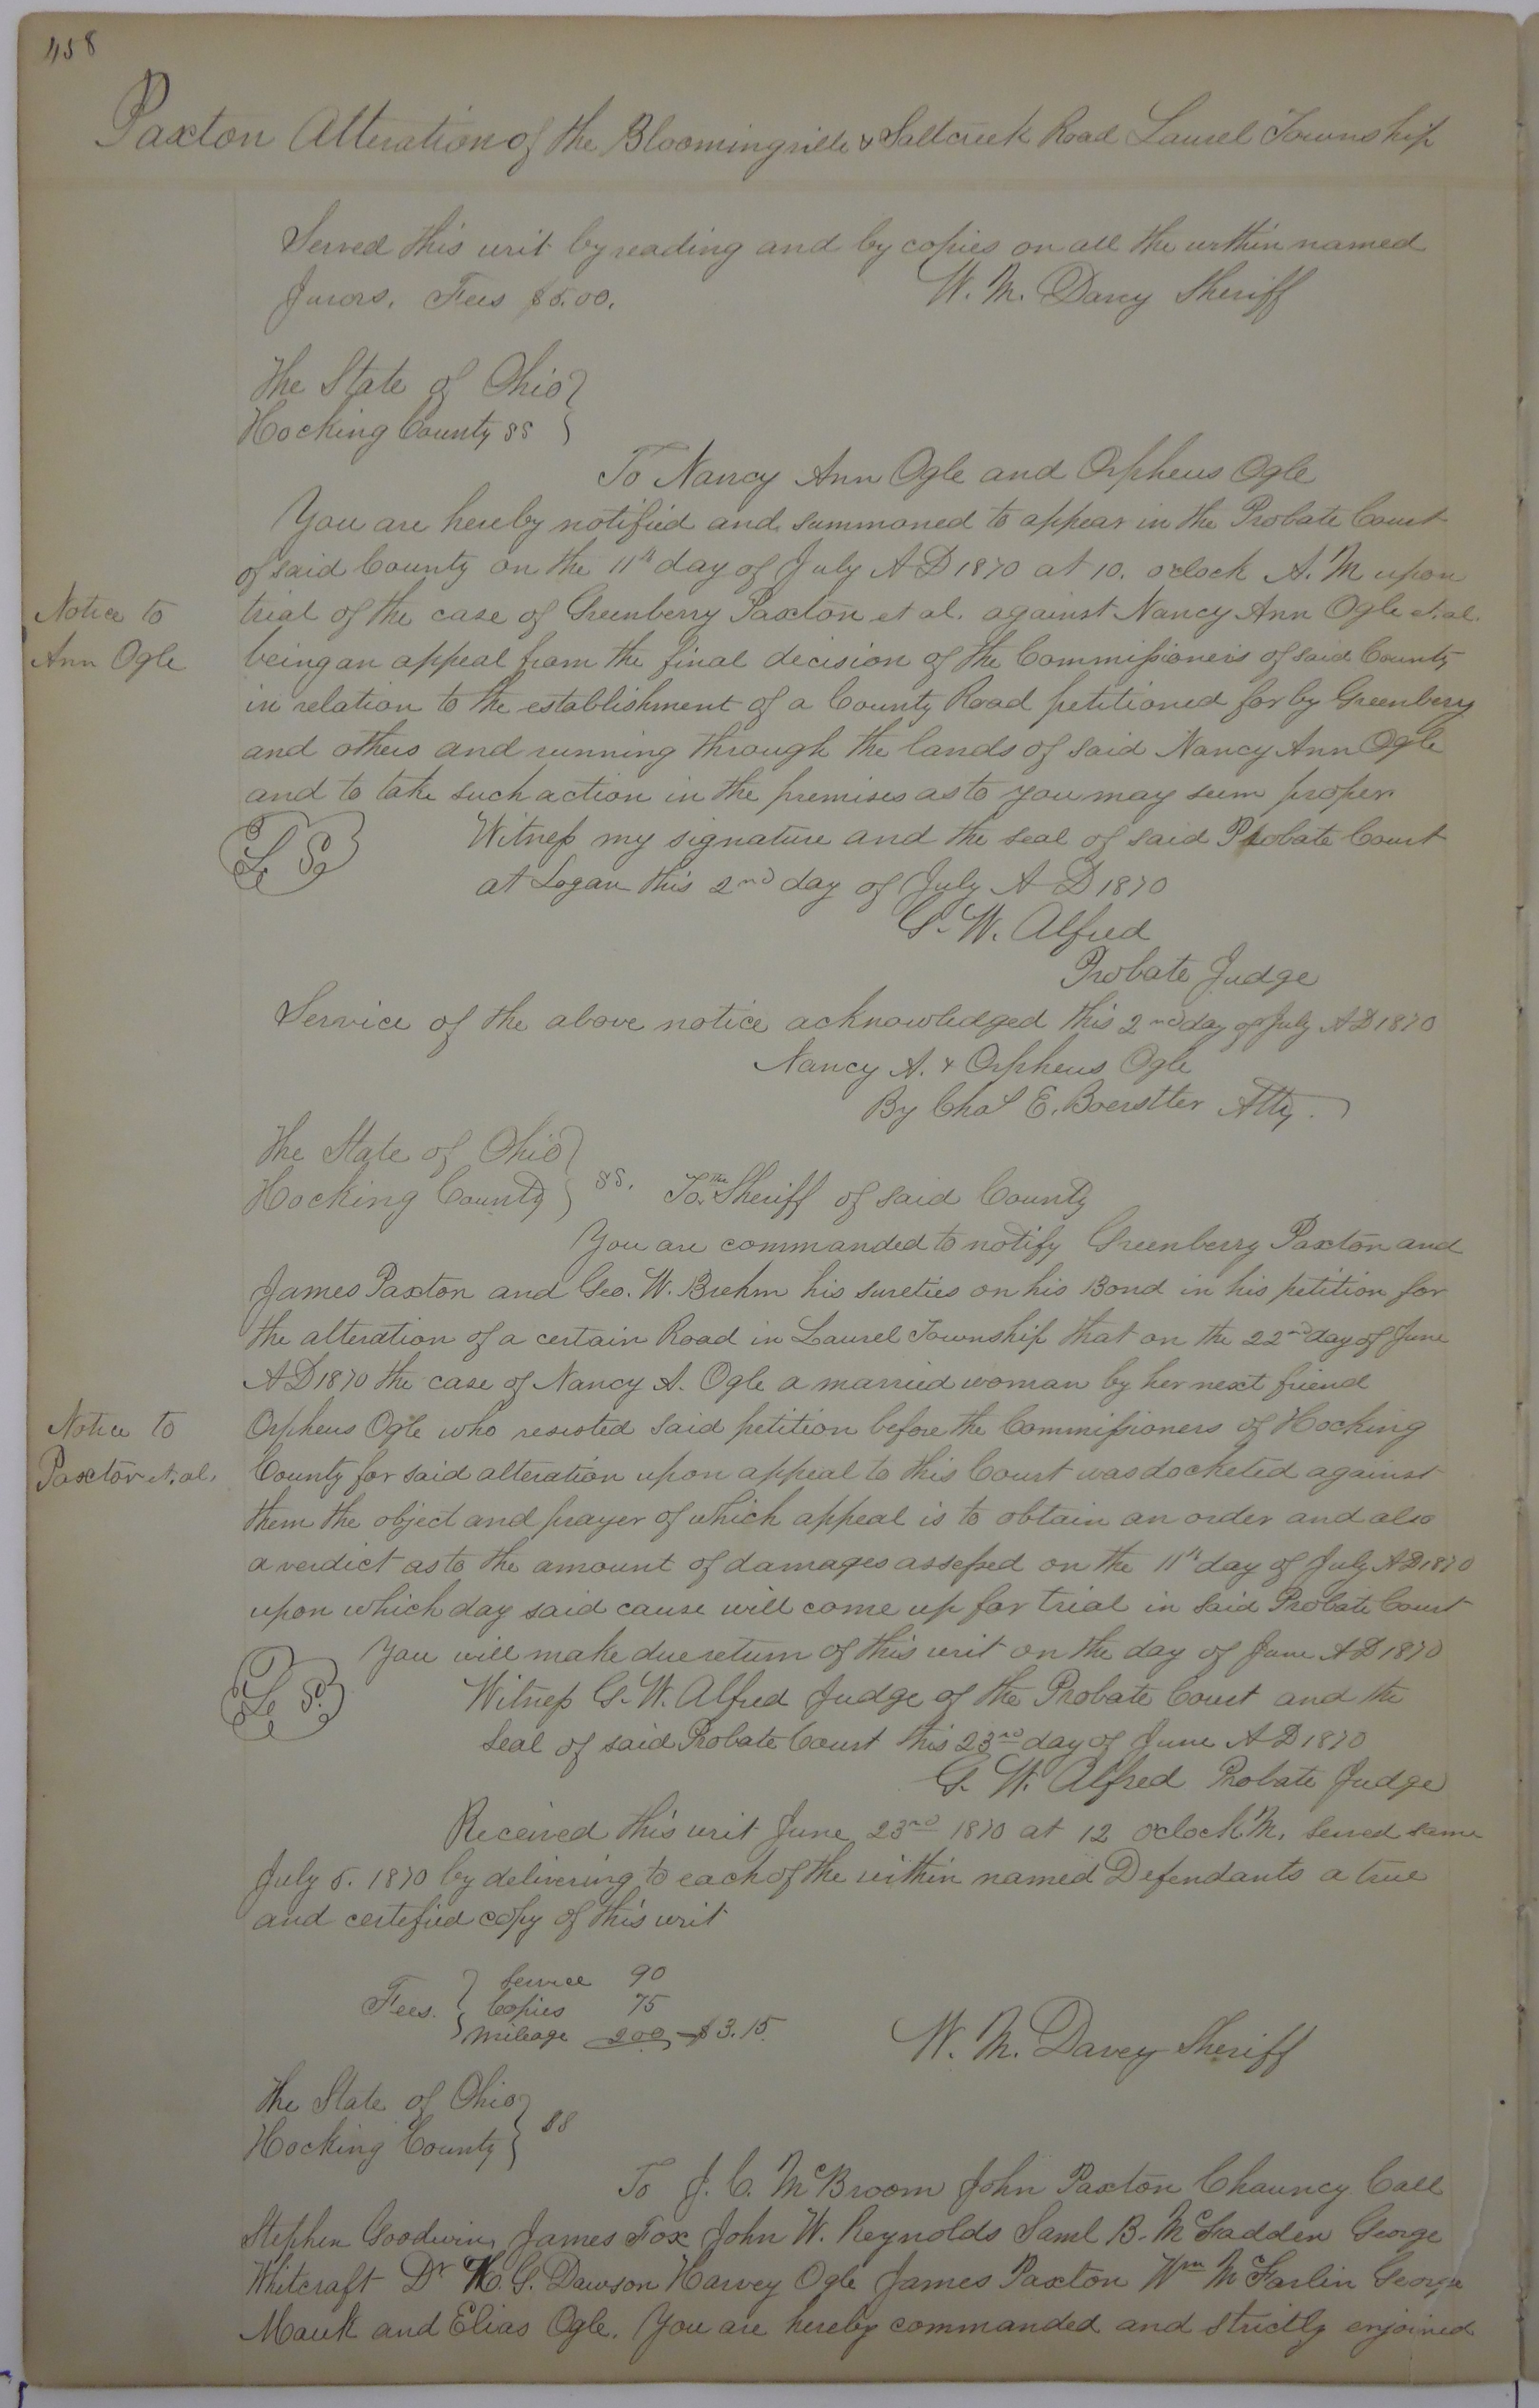 458
Paxton Alteration of the Bloomingville & Saltcreek Road Laurel Township
Served this writ by reading and by copies on all the within named
Jurors. Fees $5.00. W. M. Davey Sheriff
The State of Ohio }
Hocking County ss }
To Nancy Ann Ogle and Orpheus Ogle
You are hereby notified and summoned to appear in the Probate Court
of said County on the 11th day of July A D 1870 at 10. oclock A. M upon
Notice to
Ann Ogle
trial of the case of Greenberry Paxton et al. against Nancy Ann Ogle et. al.
being an appeal from the final decision of the Commissioners of said County
in relation to the establishment of a County Road petitioned for by Greenberry
and others and running through the lands of said Nancy Ann Ogle
and to take such action in the premises as to you may seem proper
L. S. Witness my signature and the seal of said Probate Court
at Logan this 2nd day of July A D 1870
G. W. Alfred
Probate Judge
Service of the above notice acknowledged this 2nd day of July A D 1870
Nancy A. & Orpheus Ogle
By Chas E. Boerstler Atty.
The State of Ohio }
Hocking County } ss. To The Sheriff of said County
You are commanded to notify Greenberry Paxton and
James Paxton and Geo. W. Brehm his sureties on his Bond in his petition for
the alteration of a certain Road in Laurel Township that on the 22nd day of June
A D 1870 the case of Nancy A. Ogle a married woman by her next friend
Notice to
Paxton et. al.
Orpheus Ogle who resisted said petition before the Commissioners of Hocking
County for said alteration upon appeal to this Court was docketed against
them the object and prayer of which appeal is to obtain an order and also
a verdict as to the amount of damages assessed on the 11th day of July A D 1870
upon which day said cause will come up for trial in said Probate Court
You will make due return of this writ on the day of June A D 1870
L. S. Witness G. W. Alfred Judge of the Probate Court and the
Seal of said Probate Court this 23rd day of June A D 1870
G. W. Alfred Probate Judge
Received this writ June 23rd 1870 at 12 oclock M. served same
July 5. 1870 by delivering to each of the within named Defendants a true
and certified copy of this writ
Fees. } Service 90
Copies 75
Mileage 200 $3.15 W. M. Davey Sheriff
The State of Ohio }
Hocking County } ss
To J. C. McBroom John Paxton Chauncy Call
Stephen Goodwin, James Fox John W. Reynolds Saml B. McFadden George
Whitcraft Dr H. G. Dawson Harvey Ogle James Paxton Wm McFarlin George
Mauk and Elias Ogle. You are hereby commanded and strictly enjoined